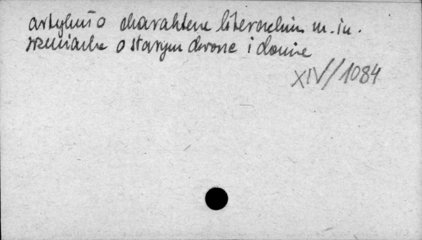 artykuł o charakterze literackim m.in.
wzmianka o starym dworze i domie
XIV/1084